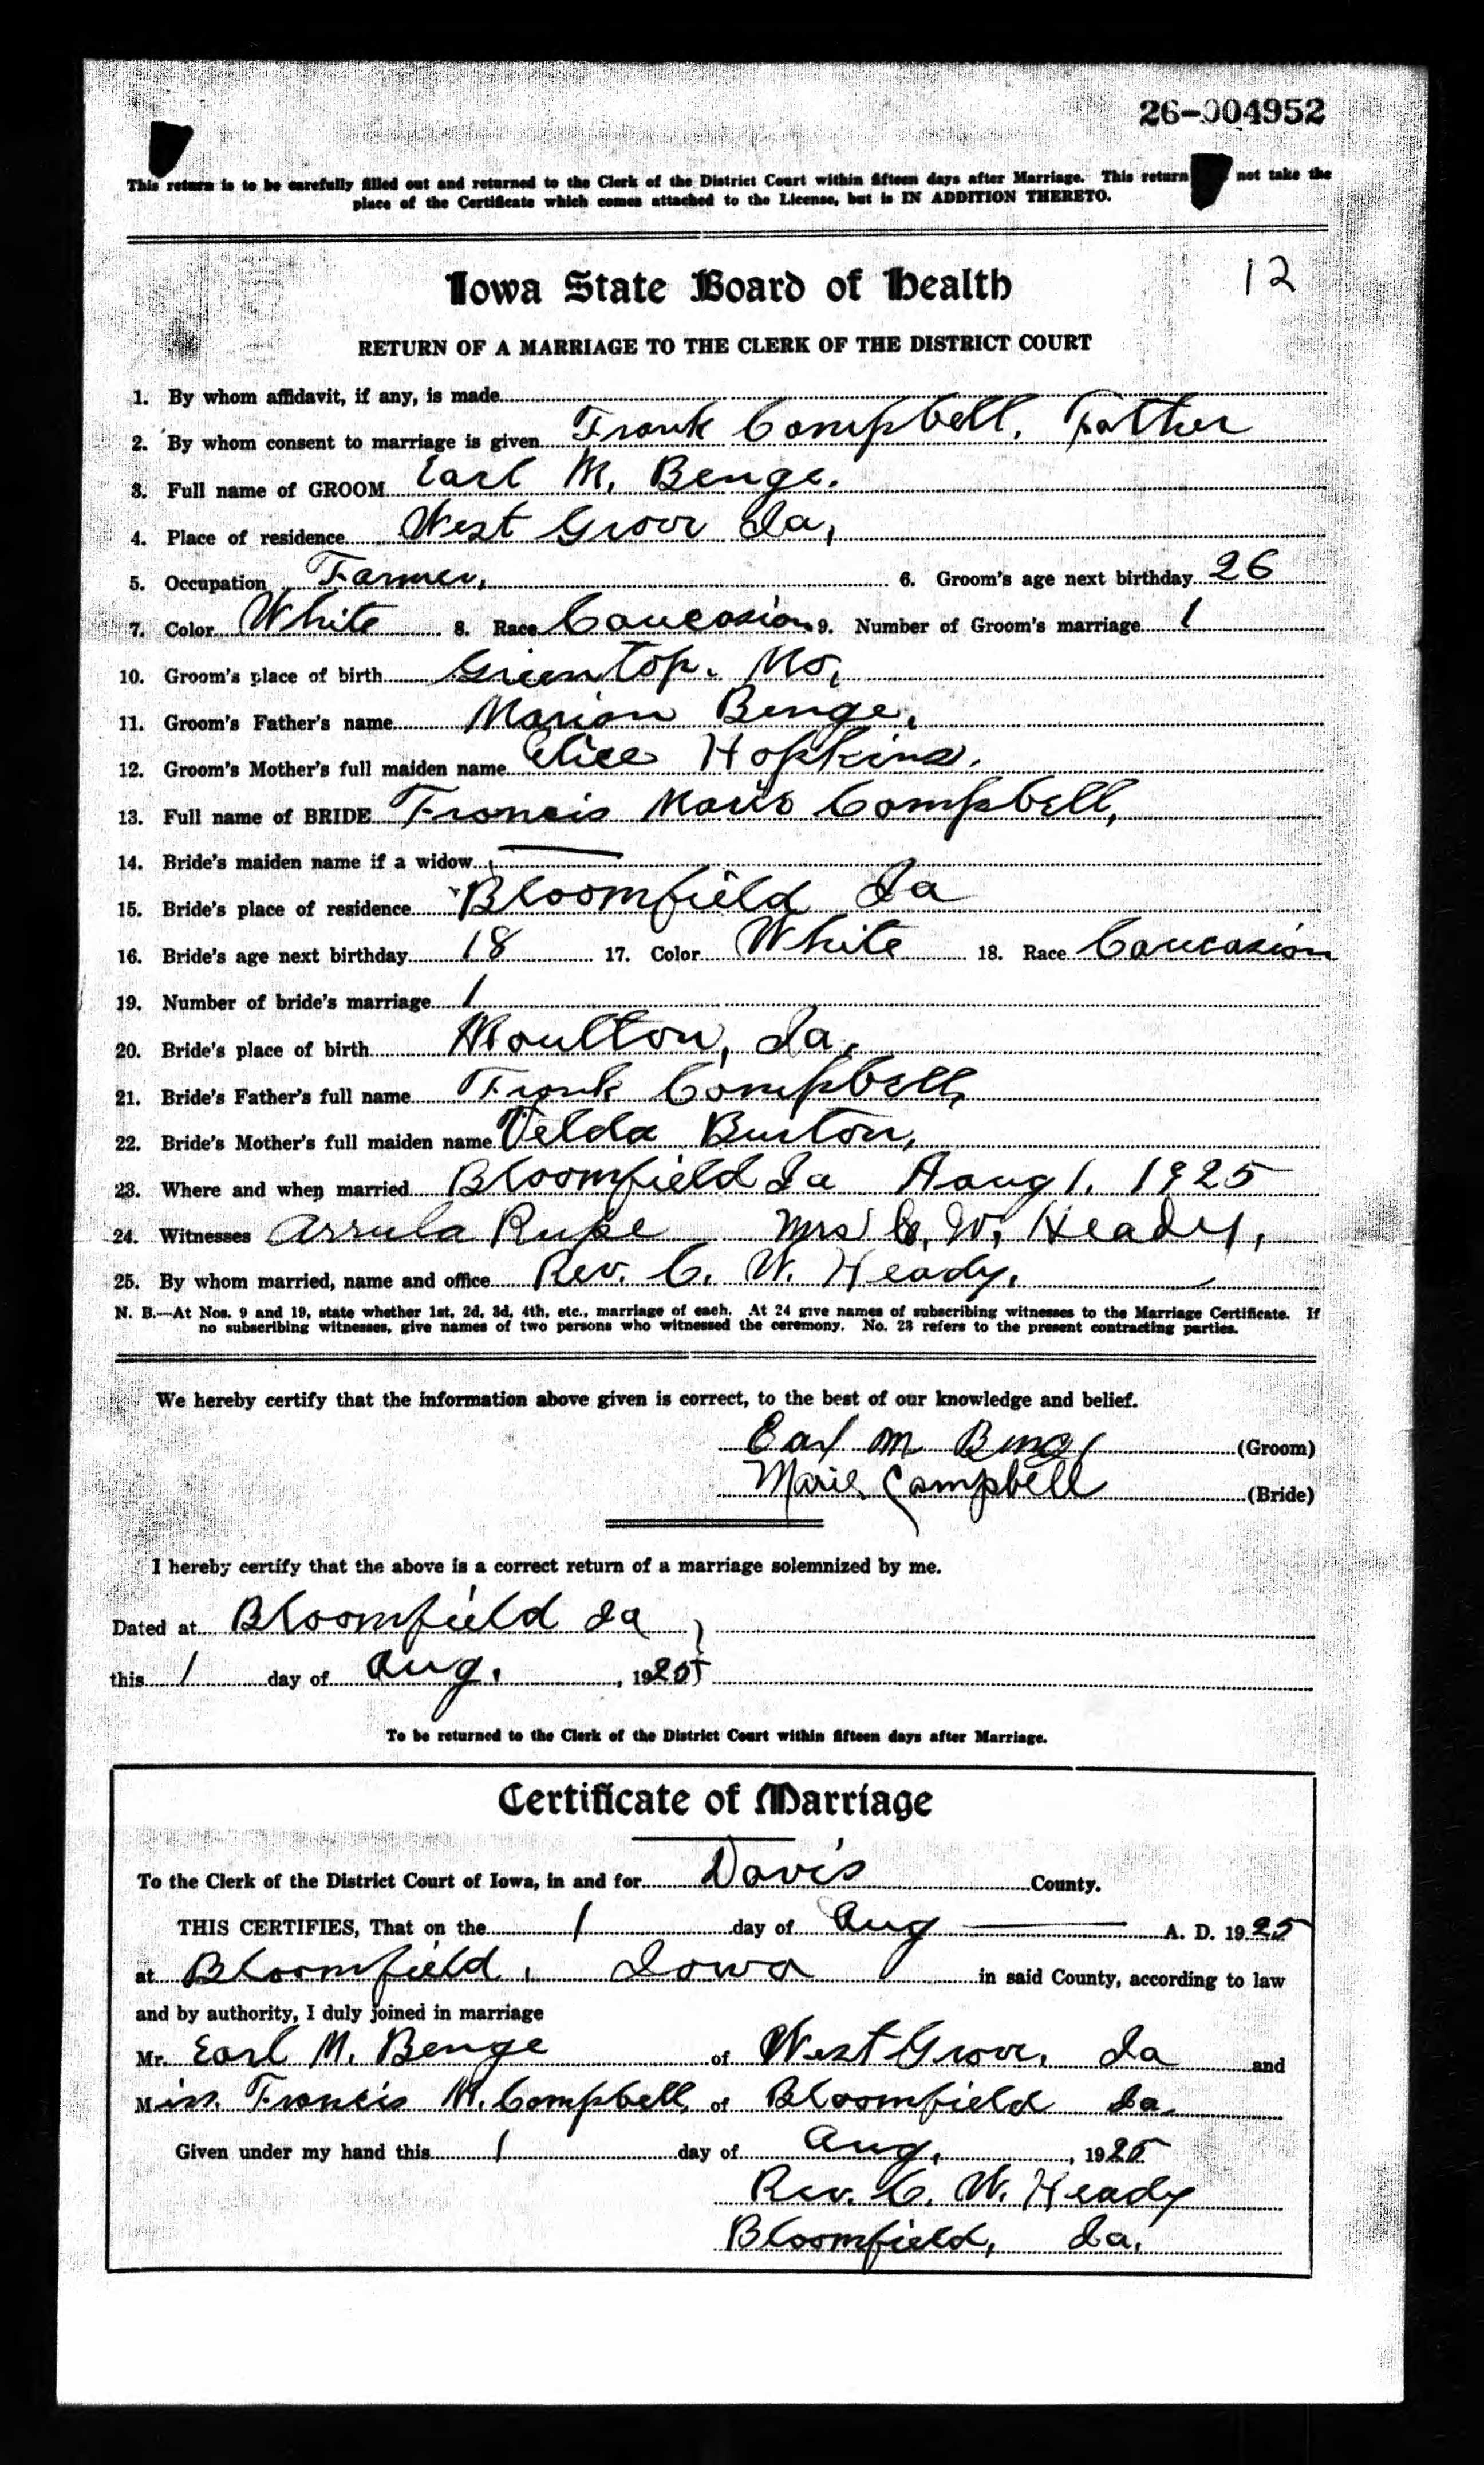 26-004952
This return is to be carefully filled out and returned to the Clerk of the District Court within fifteen days after Marriage. This return not take the
place of the Certificate which comes attached to the License, but is IN ADDITION THERETO.
Iowa State Board of Health 12
RETURN OF A MARRIAGE TO THE CLERK OF THE DISTRICT COURT
1. By whom affidavit, if any, is made
2. By whom consent to marriage is given Frank Campbell, Father
3. Full name of GROOM Earl M. Benge.
4. Place of residence West Grove Ia,
5. Occupation Farmer, 6. Groom's age next birthday 26
7. Color White 8. Race Caucasion 9. Number of Groom's marriage 1
10. Groom's place of birth Greentop. Mo,
11. Groom's Father's name Marion Benge,
12. Groom's Mother's full maiden name Alice Hopkins.
13. Full name of BRIDE Francis Marie Campbell,
14. Bride's maiden name if a widow
15. Bride's place of residence Bloomfield Ia
16. Bride's age next birthday 18 17. Color White 18. Race Caucasion
19. Number of bride's marriage 1
20. Bride's place of birth Moulton, Ia,
21. Bride's Father's full name Frank Campbell,
22. Bride's Mother's full maiden name Velda Burton,
23. Where and when married Bloomfield Ia Aaug 1. 1925
24. Witnesses Arrula Rupe Mrs C. W. Heady,
25. By whom married, name and office Rev. C. W. Heady,
N. B.—At Nos. 9 and 19, state whether 1st, 2d, 3d, 4th, etc., marriage of each. At 24 give names of subscribing witnesses to the Marriage Certificate. If
no subscribing witnesses, give names of two persons who witnessed the ceremony. No. 23 refers to the present contracting parties.
We hereby certify that the information above given is correct, to the best of our knowledge and belief.
Earl M Benge (Groom)
Marie Campbell (Bride)
I hereby certify that the above is a correct return of a marriage solemnized by me.
Dated at Bloomfield Ia
this 1 day of Aug. , 1925
To be returned to the Clerk of the District Court within fifteen days after Marriage.
Certificate of Marriage
To the Clerk of the District Court of Iowa, in and for Davis County.
THIS CERTIFIES, That on the 1 day of Aug A. D. 1925
at Bloomfield, Iowa in said County, according to law
and by authority, I duly joined in marriage
Mr. Earl M. Benge of West Grove, Ia and
Miss. Francis M. Campbell, of Bloomfield Ia
Given under my hand this 1 day of Aug. , 1925
Rev. C. W. Heady
Bloomfield, Ia.